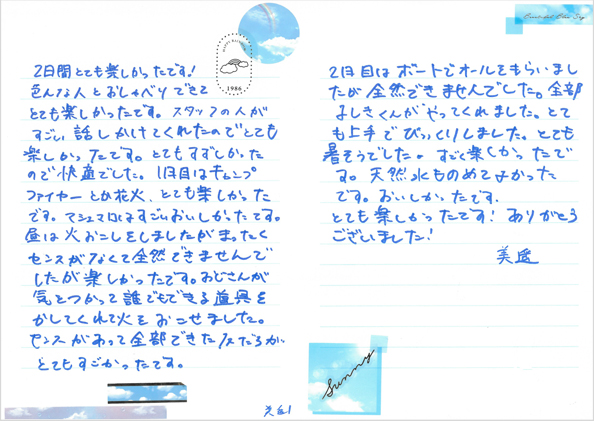 2日間とても楽しかったです!
色んな人とおしゃべりできて
とても楽しかったです。スタッフの人が
すごい話しかけてくれたのでとても
楽しかったです。とてもすずしかった
ので快適でした。1日目はキャンプ
ファイヤーとか花火、とても楽しかった
です。マシュマロはすごいおいしかったです。
昼は火おこしをしましたがまったく
センスがなくて全然できませんで
したが楽しかったです。おじさんが
気をつかって誰でもできる道具を
かしてくれて火をおこせました。
センスがあって全部できた
とてもすごかったです。
1986
2日目はボートでオールをもらいまし
たが全然できませんでした。全部
よしきくんがやってくれました。とて
も上手でびっくりしました。とても
暑そうでした。すごく楽しかったで
す。天然水ものめてよかった
です。おいしかったです。
とても楽しかったです!ありがとう
ございました!
美遥
Sunny